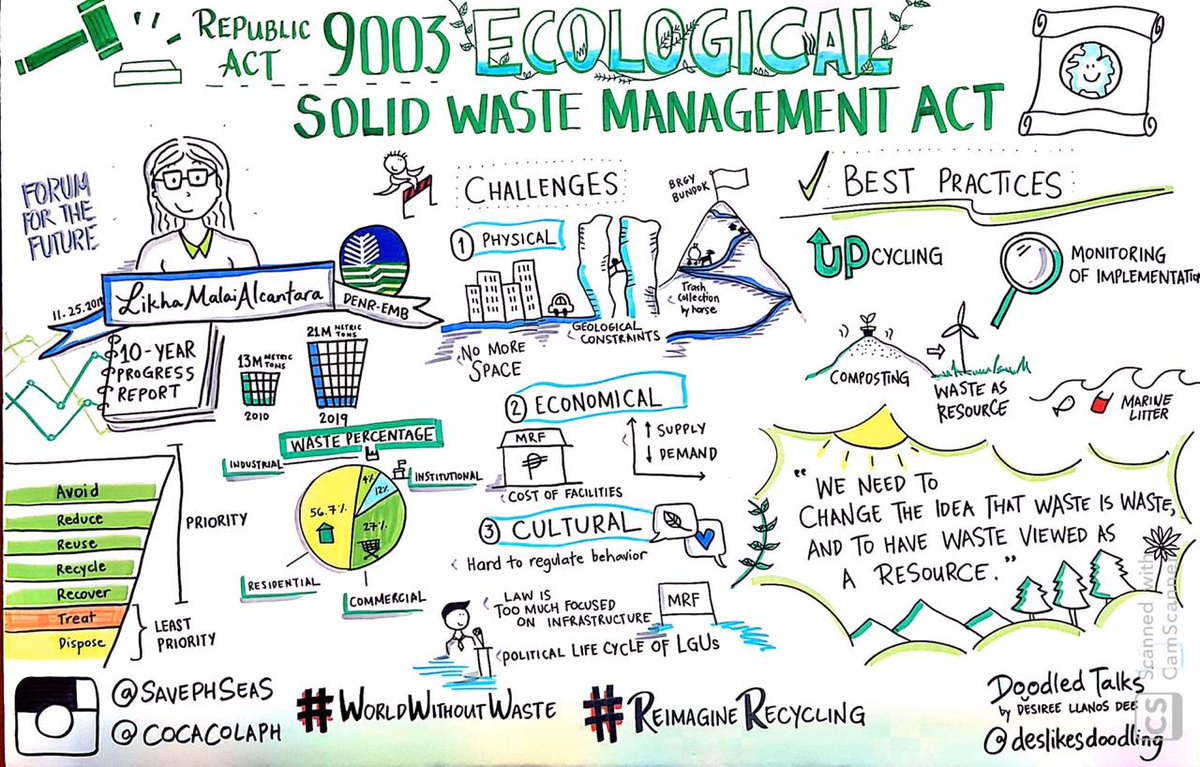 REPUBLIC
ACT
9003
ECOLOGICAL
SOLID WASTE MANAGEMENT ACT
FORUM
FOR THE
FUTURE
11.25.201
Likha Malai Alcantara
DENR-EMB
10-YEAR
PROGRESS
REPORT
13M METRIC
TONS
2010
21M METRIC
TONS
2019
WASTE PERCENTAGE
INDUSTRIAL
INSTITUTIONAL
4%
12%
56.7%
27%
RESIDENTIAL
COMMERCIAL
Avoid
Reduce
Reuse
Recycle
Recover
Treat
Dispose
PRIORITY
LEAST
PRIORITY
CHALLENGES
1 PHYSICAL
NO MORE
SPACE
GEOLOGICAL
CONSTRAINTS
BRGY
BUNDOK
Trash
collection
by horse
2 ECONOMICAL
MRF
₱
COST OF FACILITIES
↑ SUPPLY
↓ DEMAND
3 CULTURAL
Hard to regulate behavior
LAW IS
TOO MUCH FOCUSED
ON INFRASTRUCTURE
MRF
POLITICAL LIFE CYCLE OF LGUs
BEST PRACTICES
UPCYCLING
MONITORING
OF IMPLEMENTATIO
COMPOSTING
WASTE AS
RESOURCE
MARINE
LITTER
"WE NEED TO
CHANGE THE IDEA THAT WASTE IS WASTE,
AND TO HAVE WASTE VIEWED AS
A RESOURCE."
@SAVEPHSEAS
@COCACOLAPH
#WORLDWITHOUTWASTE
#REIMAGINERECYCLING
Doodled Talks
by DESIREE LLANOS DEE
@deslikesdoodling
CS
Scanned with
CamScanner